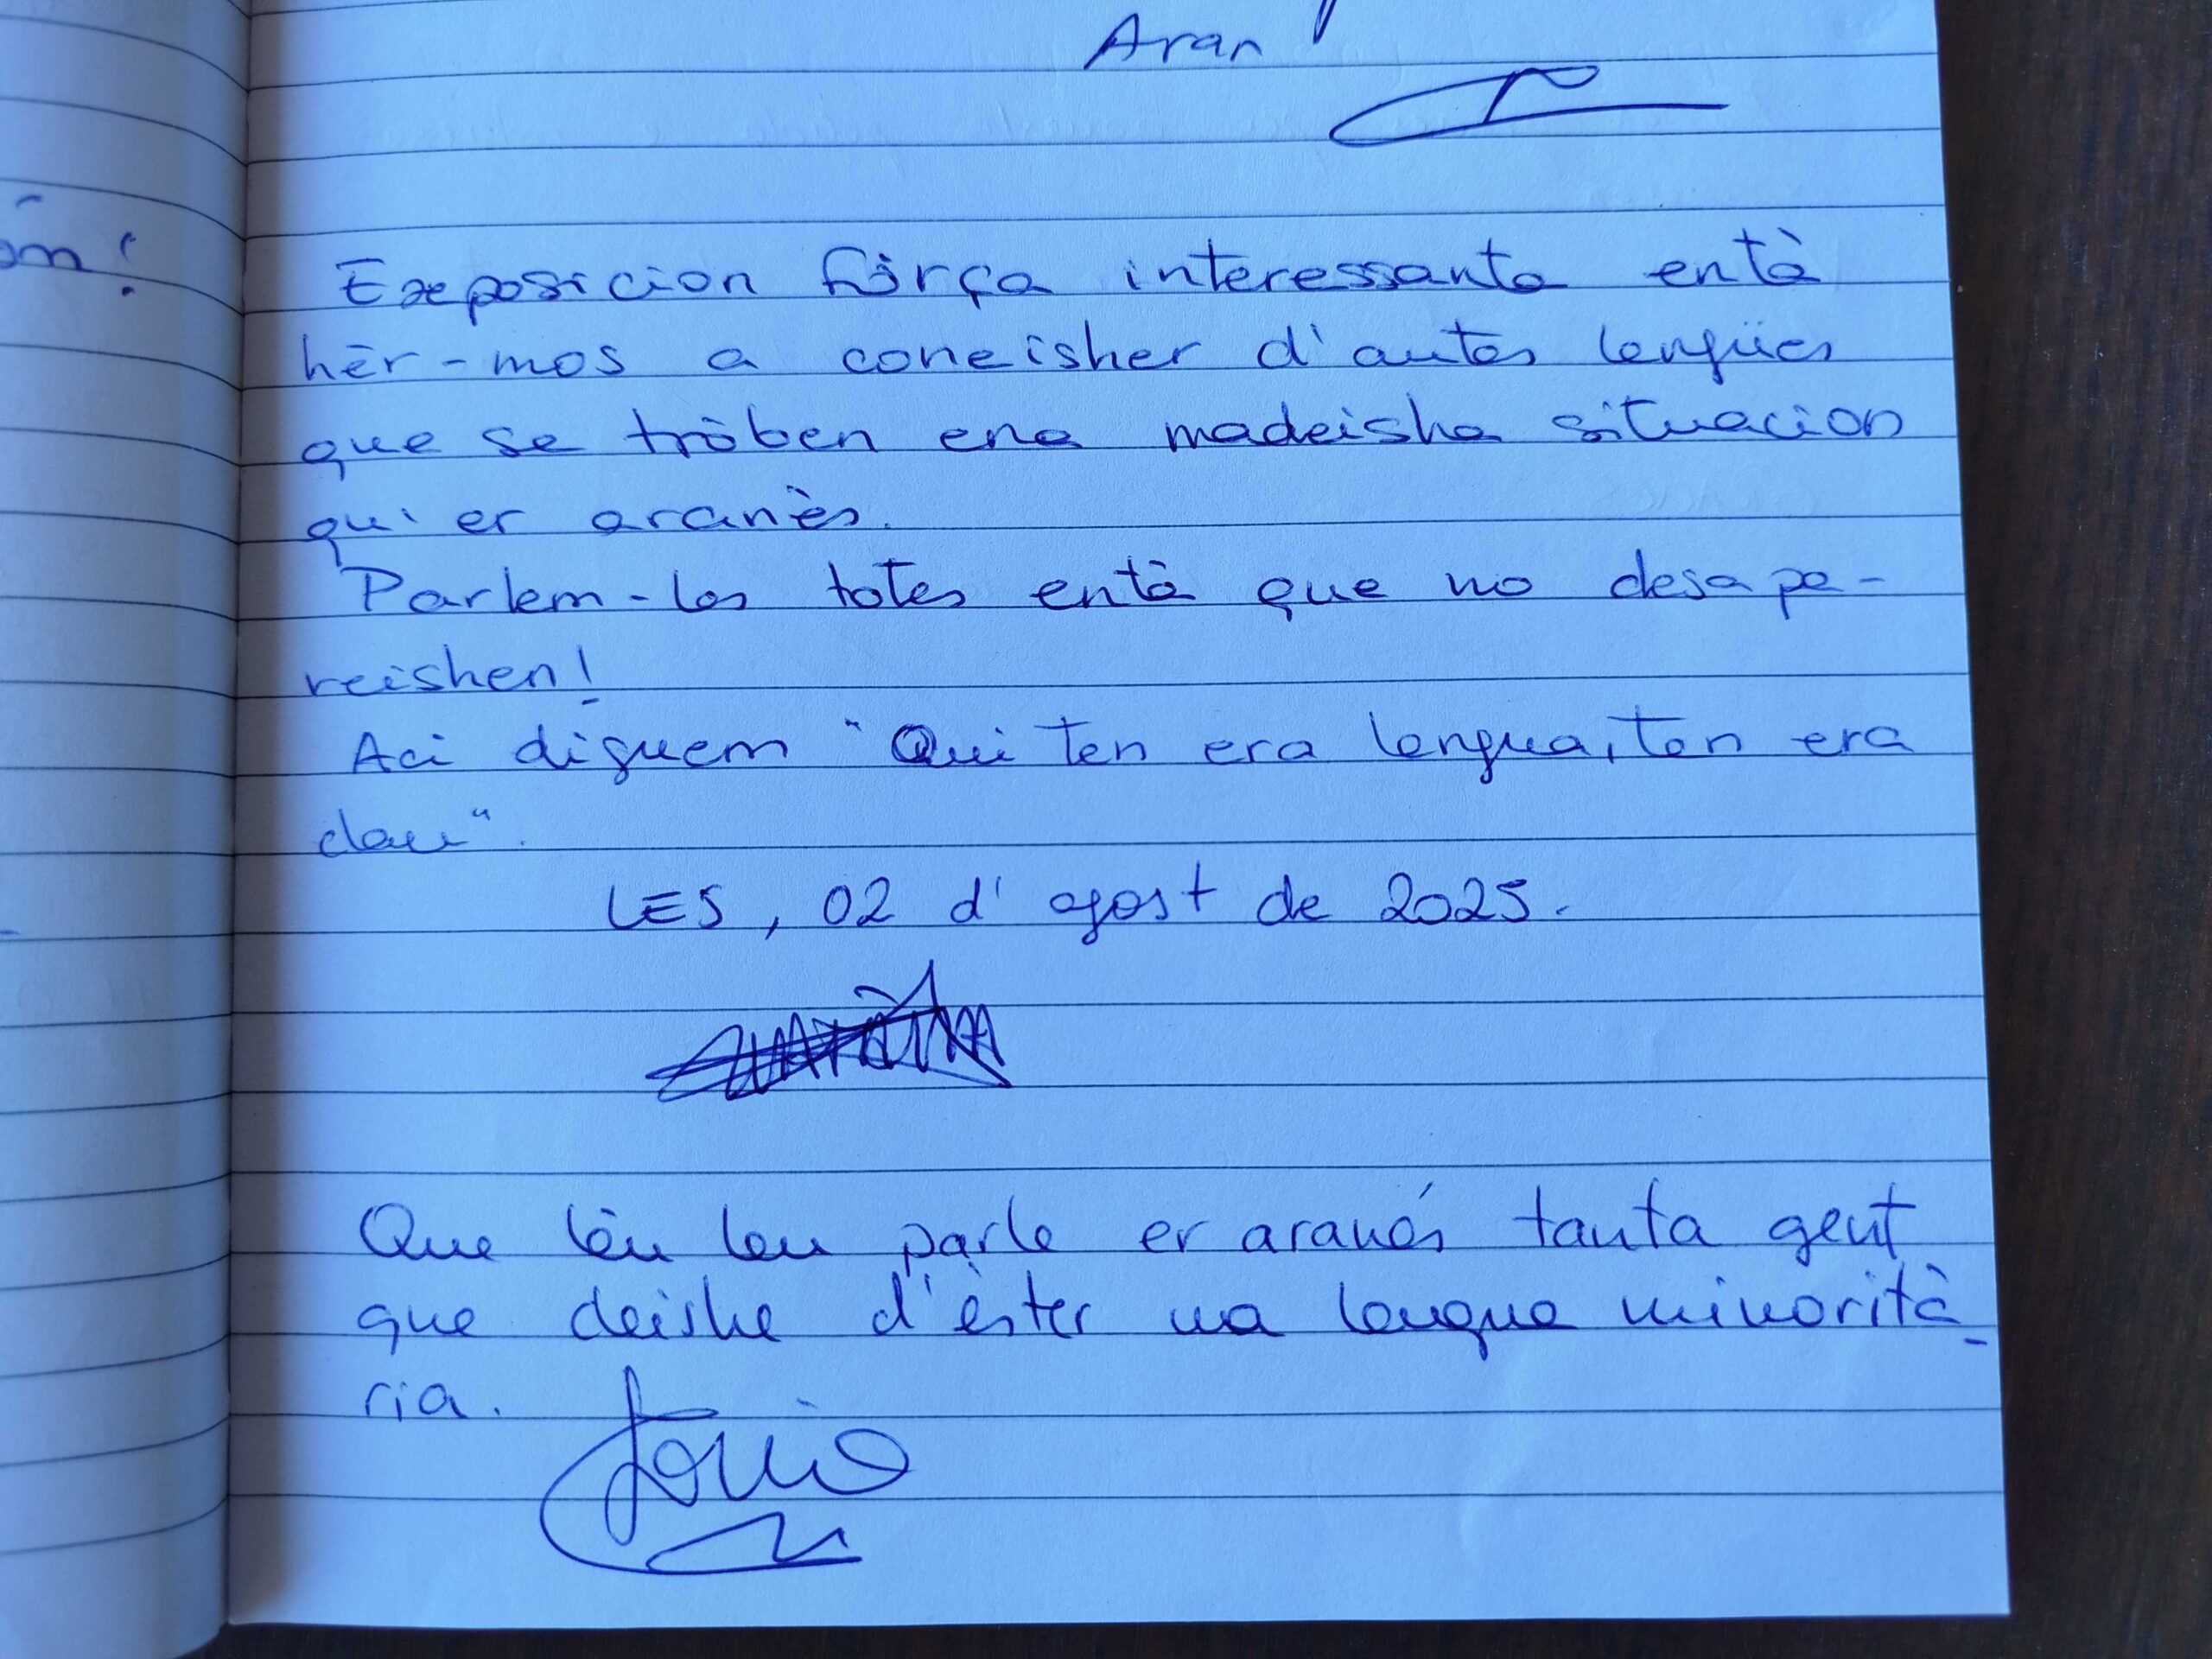 Aran
Exposicion fòrça interessanta entà
hèr-mos a coneisher d'autes lengües
que se tròben ena madeisha situacion
qu'er aranès.
Parlem-les totes entà que no desapa-
reishen!
Aci diguem "Qui ten era lengua, ten era
clau".
LES, 02 d'agost de 2025.
Que lèu leu parle er aranés tanta gent
que deishe d'èster ua lengua minorità-
ria.